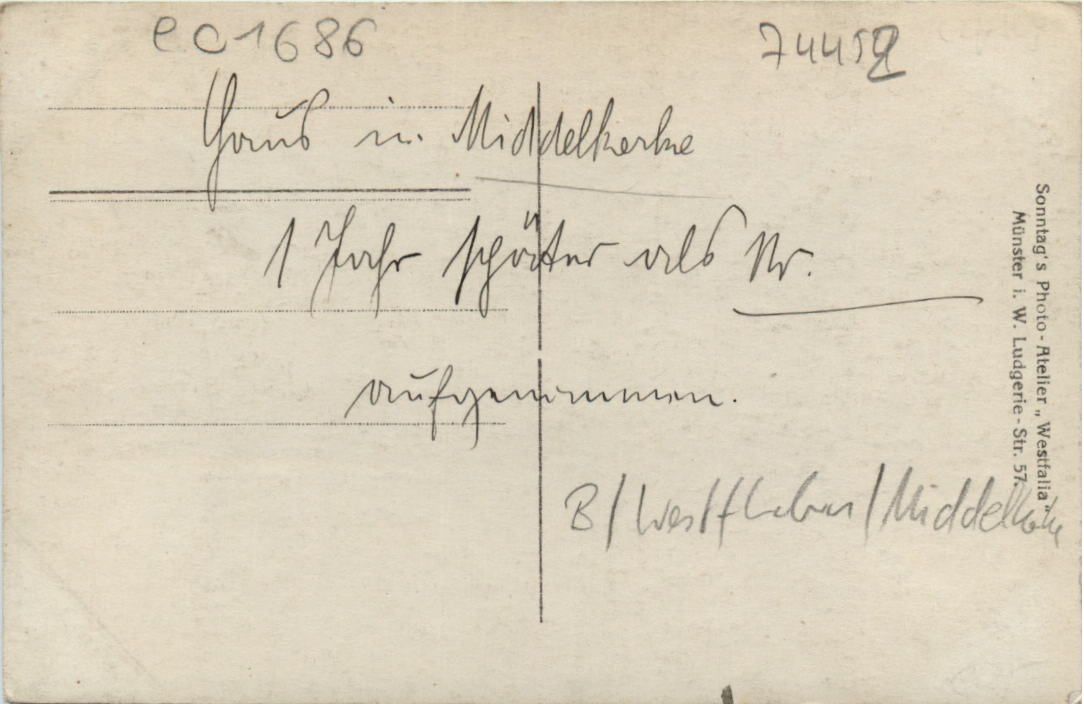 ec1686
Haus in Middelkerke
1 Jahr später als Nr.
aufgenommen.
B/Westflabern/Middelkerke
Sonntag's Photo-Atelier „Westfalia"
Münster i. W. Ludgerie-Str. 57.